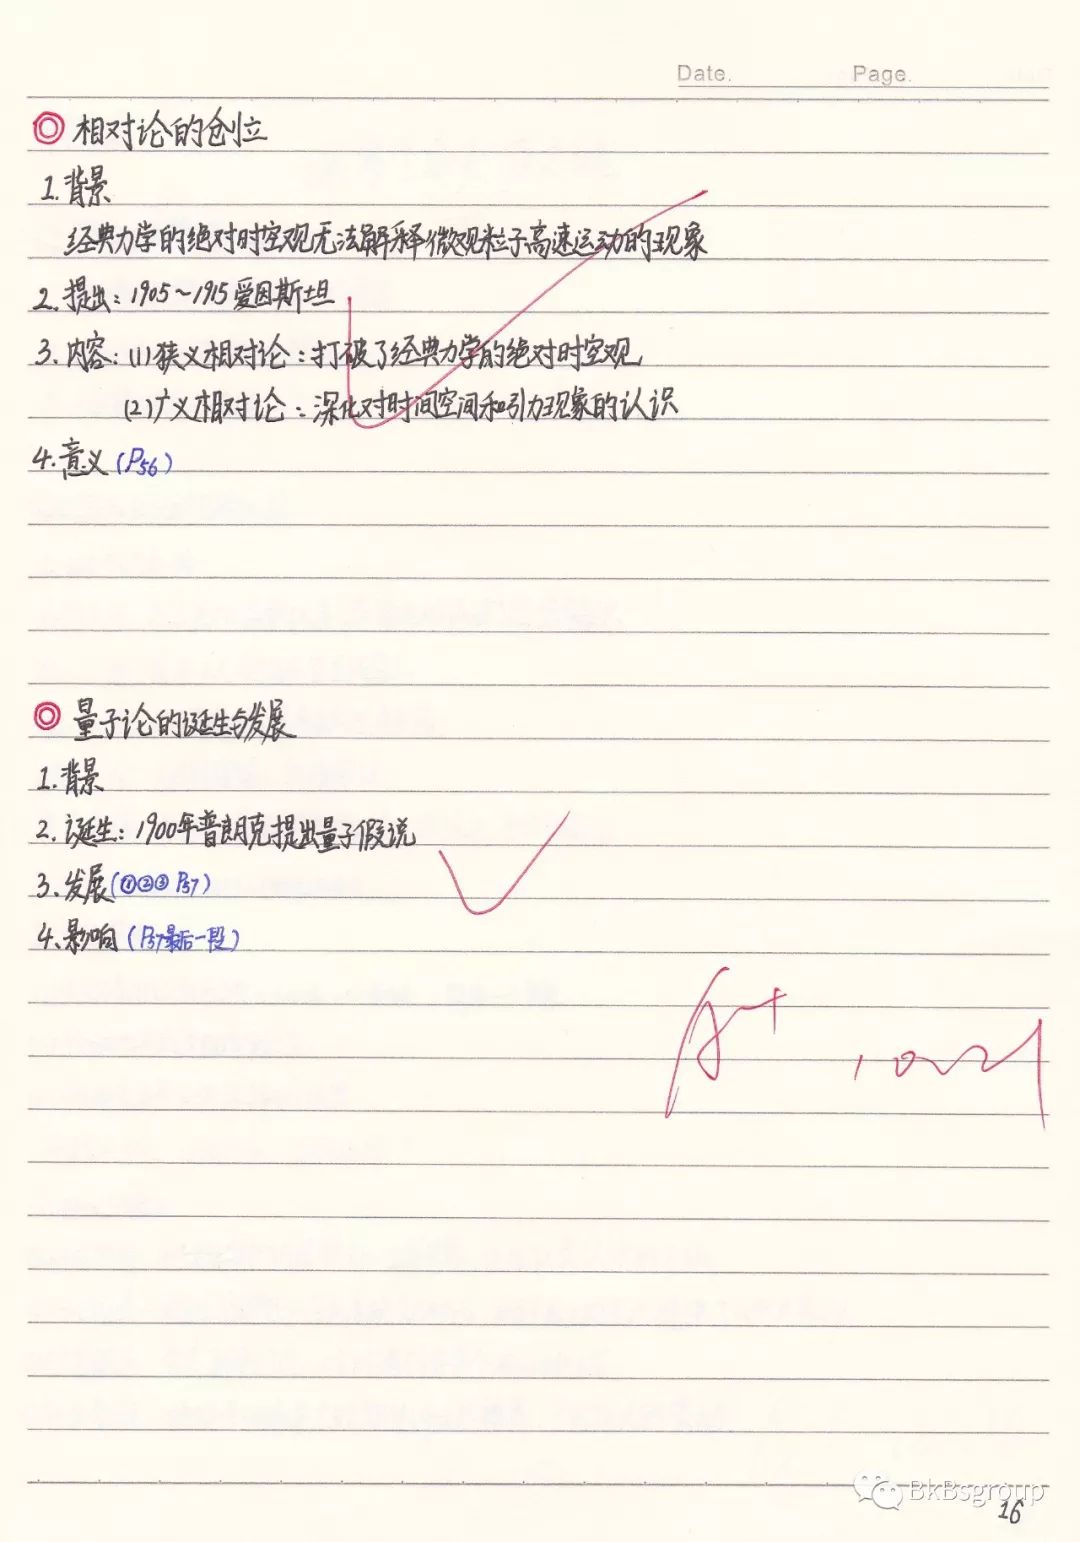 Date. Page.
◎ 相对论的创立
1.背景
经典力学的绝对时空观无法解释微观粒子高速运动的现象
2.提出:1905~1915爱因斯坦
3.内容:(1)狭义相对论:打破了经典力学的绝对时空观
(2)广义相对论:深化对时间空间和引力现象的认识
4.意义(P56)
◎ 量子论的诞生与发展
1.背景
2.诞生:1900年普朗克提出量子假说
3.发展(①②③ P57)
4.影响(P57最后一段)
A+
BkBsgroup
16